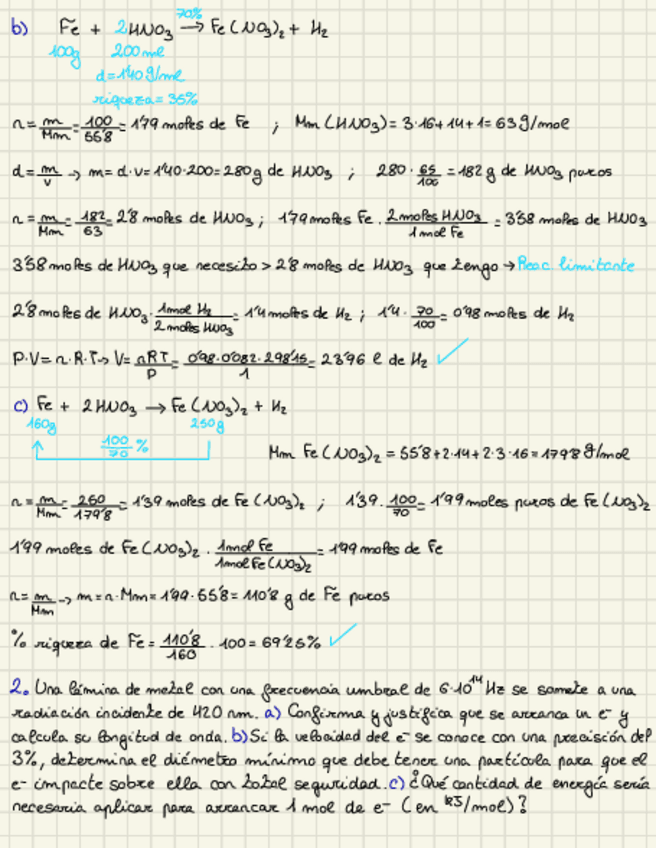 70%
b) Fe + 2HNO₃ → Fe(NO₃)₂ + H₂
100g 200ml
d=1'40g/ml
riqueza = 35%
n = m/Mm = 100/55'8 = 1'79 moles de Fe ; Mm (HNO₃) = 3·16+14+1 = 63g/mol
d = m/v → m = d·v = 1'40·200 = 280g de HNO₃ ; 280 · 65/100 = 182 g de HNO₃ puros
n = m/Mm = 182/63 = 2'8 moles de HNO₃ ; 1'79 moles Fe · 2 moles HNO₃/1 mol Fe = 3'58 moles de HNO₃
3'58 moles de HNO₃ que necesito > 2'8 moles de HNO₃ que tengo → Reac. limitante
2'8 moles de HNO₃ · 1mol H₂/2 moles HNO₃ = 1'4 moles de H₂ ; 1'4 · 70/100 = 0'98 moles de H₂
P·V = n·R·T → V = nRT/P = 0'98·0'082·298'15/1 = 23'96 l de H₂ ✓
c) Fe + 2HNO₃ → Fe(NO₃)₂ + H₂
160g 250g
100/70 %
Mm Fe(NO₃)₂ = 55'8+2·14+2·3·16 = 179'8 g/mol
n = m/Mm = 250/179'8 = 1'39 moles de Fe(NO₃)₂ ; 1'39 · 100/70 = 1'99 moles puros de Fe(NO₃)₂
1'99 moles de Fe(NO₃)₂ · 1mol Fe/1mol Fe(NO₃)₂ = 1'99 moles de Fe
n = m/Mm → m = n·Mm = 1'99·55'8 = 110'8 g de Fe puros
% riqueza de Fe = 110'8/160 · 100 = 69'25% ✓
2. Una lámina de metal con una frecuencia umbral de 6·10¹⁴ Hz se somete a una
radiación incidente de 420 nm. a) Confirma y justifica que se arranca un e⁻ y
calcula su longitud de onda. b) Si la velocidad del e⁻ se conoce con una precisión del
3%, determina el diámetro mínimo que debe tener una partícula para que el
e⁻ impacte sobre ella con total seguridad. c) ¿Qué cantidad de energía sería
necesaria aplicar para arrancar 1 mol de e⁻ (en kJ/mol)?